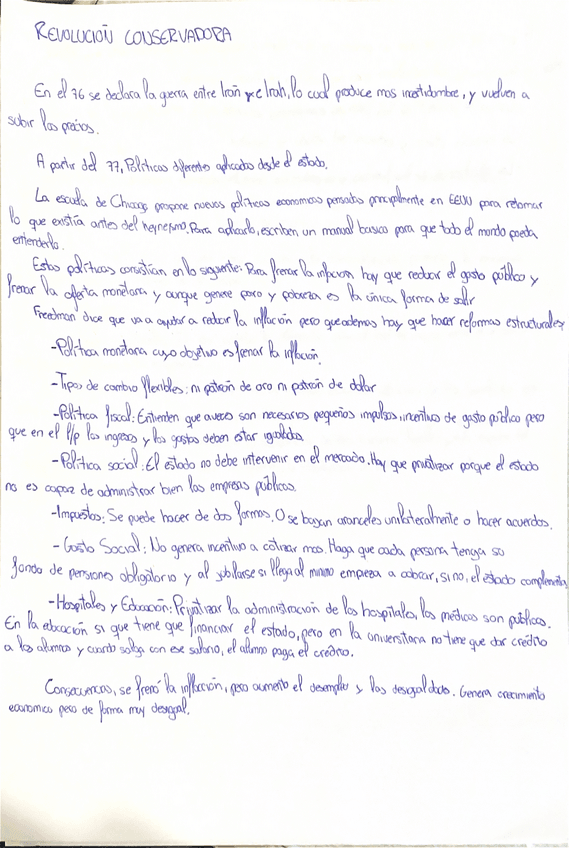 REVOLUCIÓN CONSERVADORA
En el 76 se declara la guerra entre Irán e Irak, lo cual produce mas incertidumbre, y vuelven a
subir los precios.
A partir del 77, Políticas diferentes aplicadas desde el estado.
La escuela de Chicago propone nuevas políticas economicas pensadas principalmente en EEUU para retomar
lo que existía antes del keynesismo. Para aplicarlo, escriben un manual basico para que todo el mondo pueda
entenderlo.
Estas políticas consistían en lo siguiente: Para frenar la inflacion hay que reducir el gasto público y
frenar la oferta monetaria y aunque genere paro y pobreza es la única forma de salir
Freedman dice que va a ayudar a reducir la inflación pero que ademas hay que hacer reformas estructurales;
-Política monetaria cuyo objetivo es frenar la inflación.
-Tipos de cambio flexibles: ni patrón de oro ni patrón de dolar
-Política fiscal: Entienten que aveces son necesarios pequeños impulsos, incentivos de gasto público pero
que en el l/p los ingresos y los gastos deben estar igualados.
-Política social: El estado no debe intervenir en el mercado. Hay que privatizar porque el estado
no es capaz de administrar bien las empresas públicas.
-Impuestos: Se puede hacer de dos formas. O se bajan aranceles unilateralmente o hacer acuerdos.
- Gasto Social: No genera incentivo a cotizar mas. Haga que cada persona tenga su
fondo de pensiones obligatorio y al jubilarse si llega al minimo empieza a cobrar, si no, el estado complementa
-Hospitales y Educación: Privatizar la administración de los hospitales, los médicos son públicos.
En la educación si que tiene que financiar el estado, pero en la universitaria no tiene que dar crédito
a los alumnos y cuando salga con ese salario, el alumno paga el credito.
Consecuencias, se frenó la inflacción, pero aumento el desempleo y las desigualdades. Genera crecimiento
economico pero de forma muy desigual.